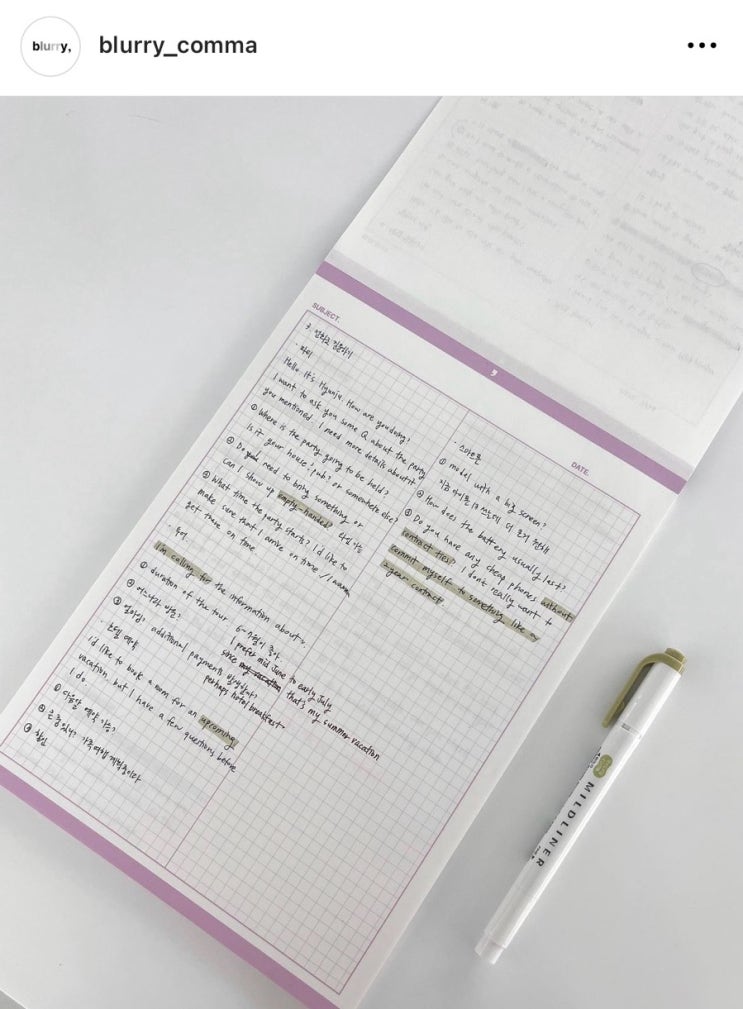 blurry,
blurry_comma
SUBJECT.
DATE.
3. 전화로 질문하기
· 파티
Hello. It's Hyunju. How are you doing?
I want to ask you some Q about the party
you mentioned. I need more details about it.
① Where is the party going to be held?
Is it your house?, pub? or somewhere else?
② Do you need to bring something or
can I show up empty-handed?
③ What time the party starts? I'd like to
make sure that I arrive on time / I wanna
get there on time.
· 투어
I'm calling for the information about~.
① duration of the tour.
6-7월이 좋아.
I prefer mid June to early July
since my vacation that's my summer vacation
additional payments
perhaps hotel breakfast
· 호텔 예약
I'd like to book a room for an upcoming
vacation, but I have a few questions before
I do.
① 다음달 예약 가능?
③ 할인
· 스마트폰
① model with a big screen?
② How does the battery usually last?
③ Do you have any cheap phones without
contract ties? I don't really want to
commit myself to something like
a year contract.
MILDLINER